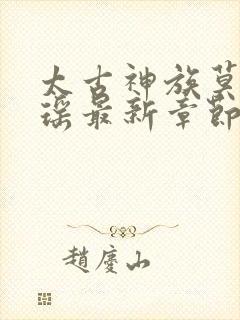 太古神族莫
瑶最新章節
趙慶山